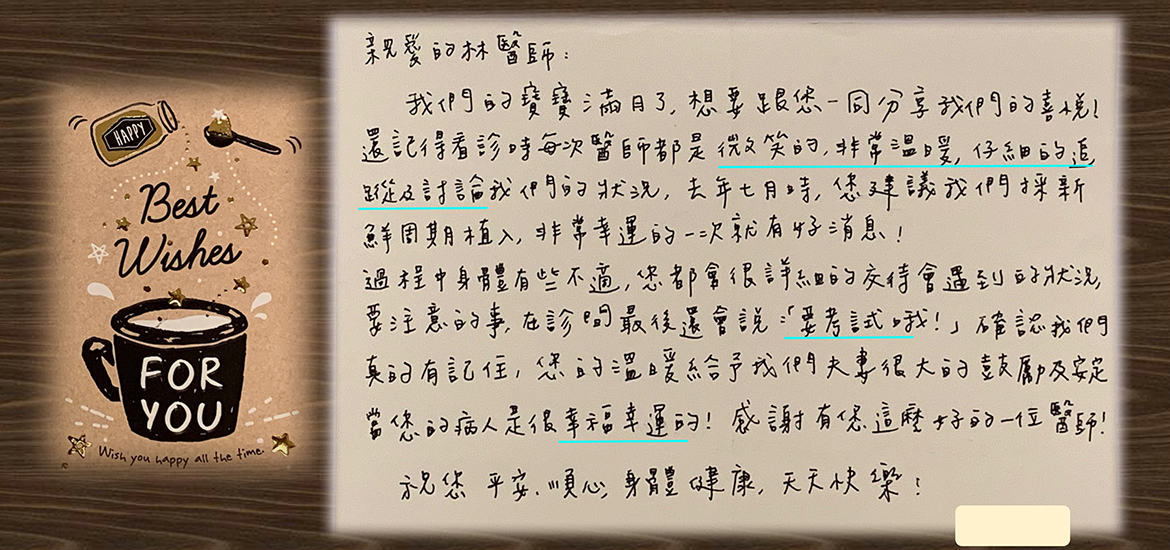 HAPPY
Best
Wishes
FOR
YOU
Wish you happy all the time.
親愛的林醫師:
我們的寶寶滿月了,想要跟您一同分享我們的喜悅!
還記得看診時每次醫師都是微笑的,非常溫暖,仔細的追
蹤及討論我們的狀況,去年七月時,您建議我們採新
鮮周期植入,非常幸運的一次就有好消息!
過程中身體有些不適,您都會很詳細的交待會遇到的狀況,
要注意的事,在診間最後還會說:「要考試哦!」確認我們
真的有記住,您的溫暖給予我們夫妻很大的鼓勵及安定
當您的病人是很幸福幸運的!感謝有您這麼好的一位醫師!
祝您 平安、順心,身體健康,天天快樂!